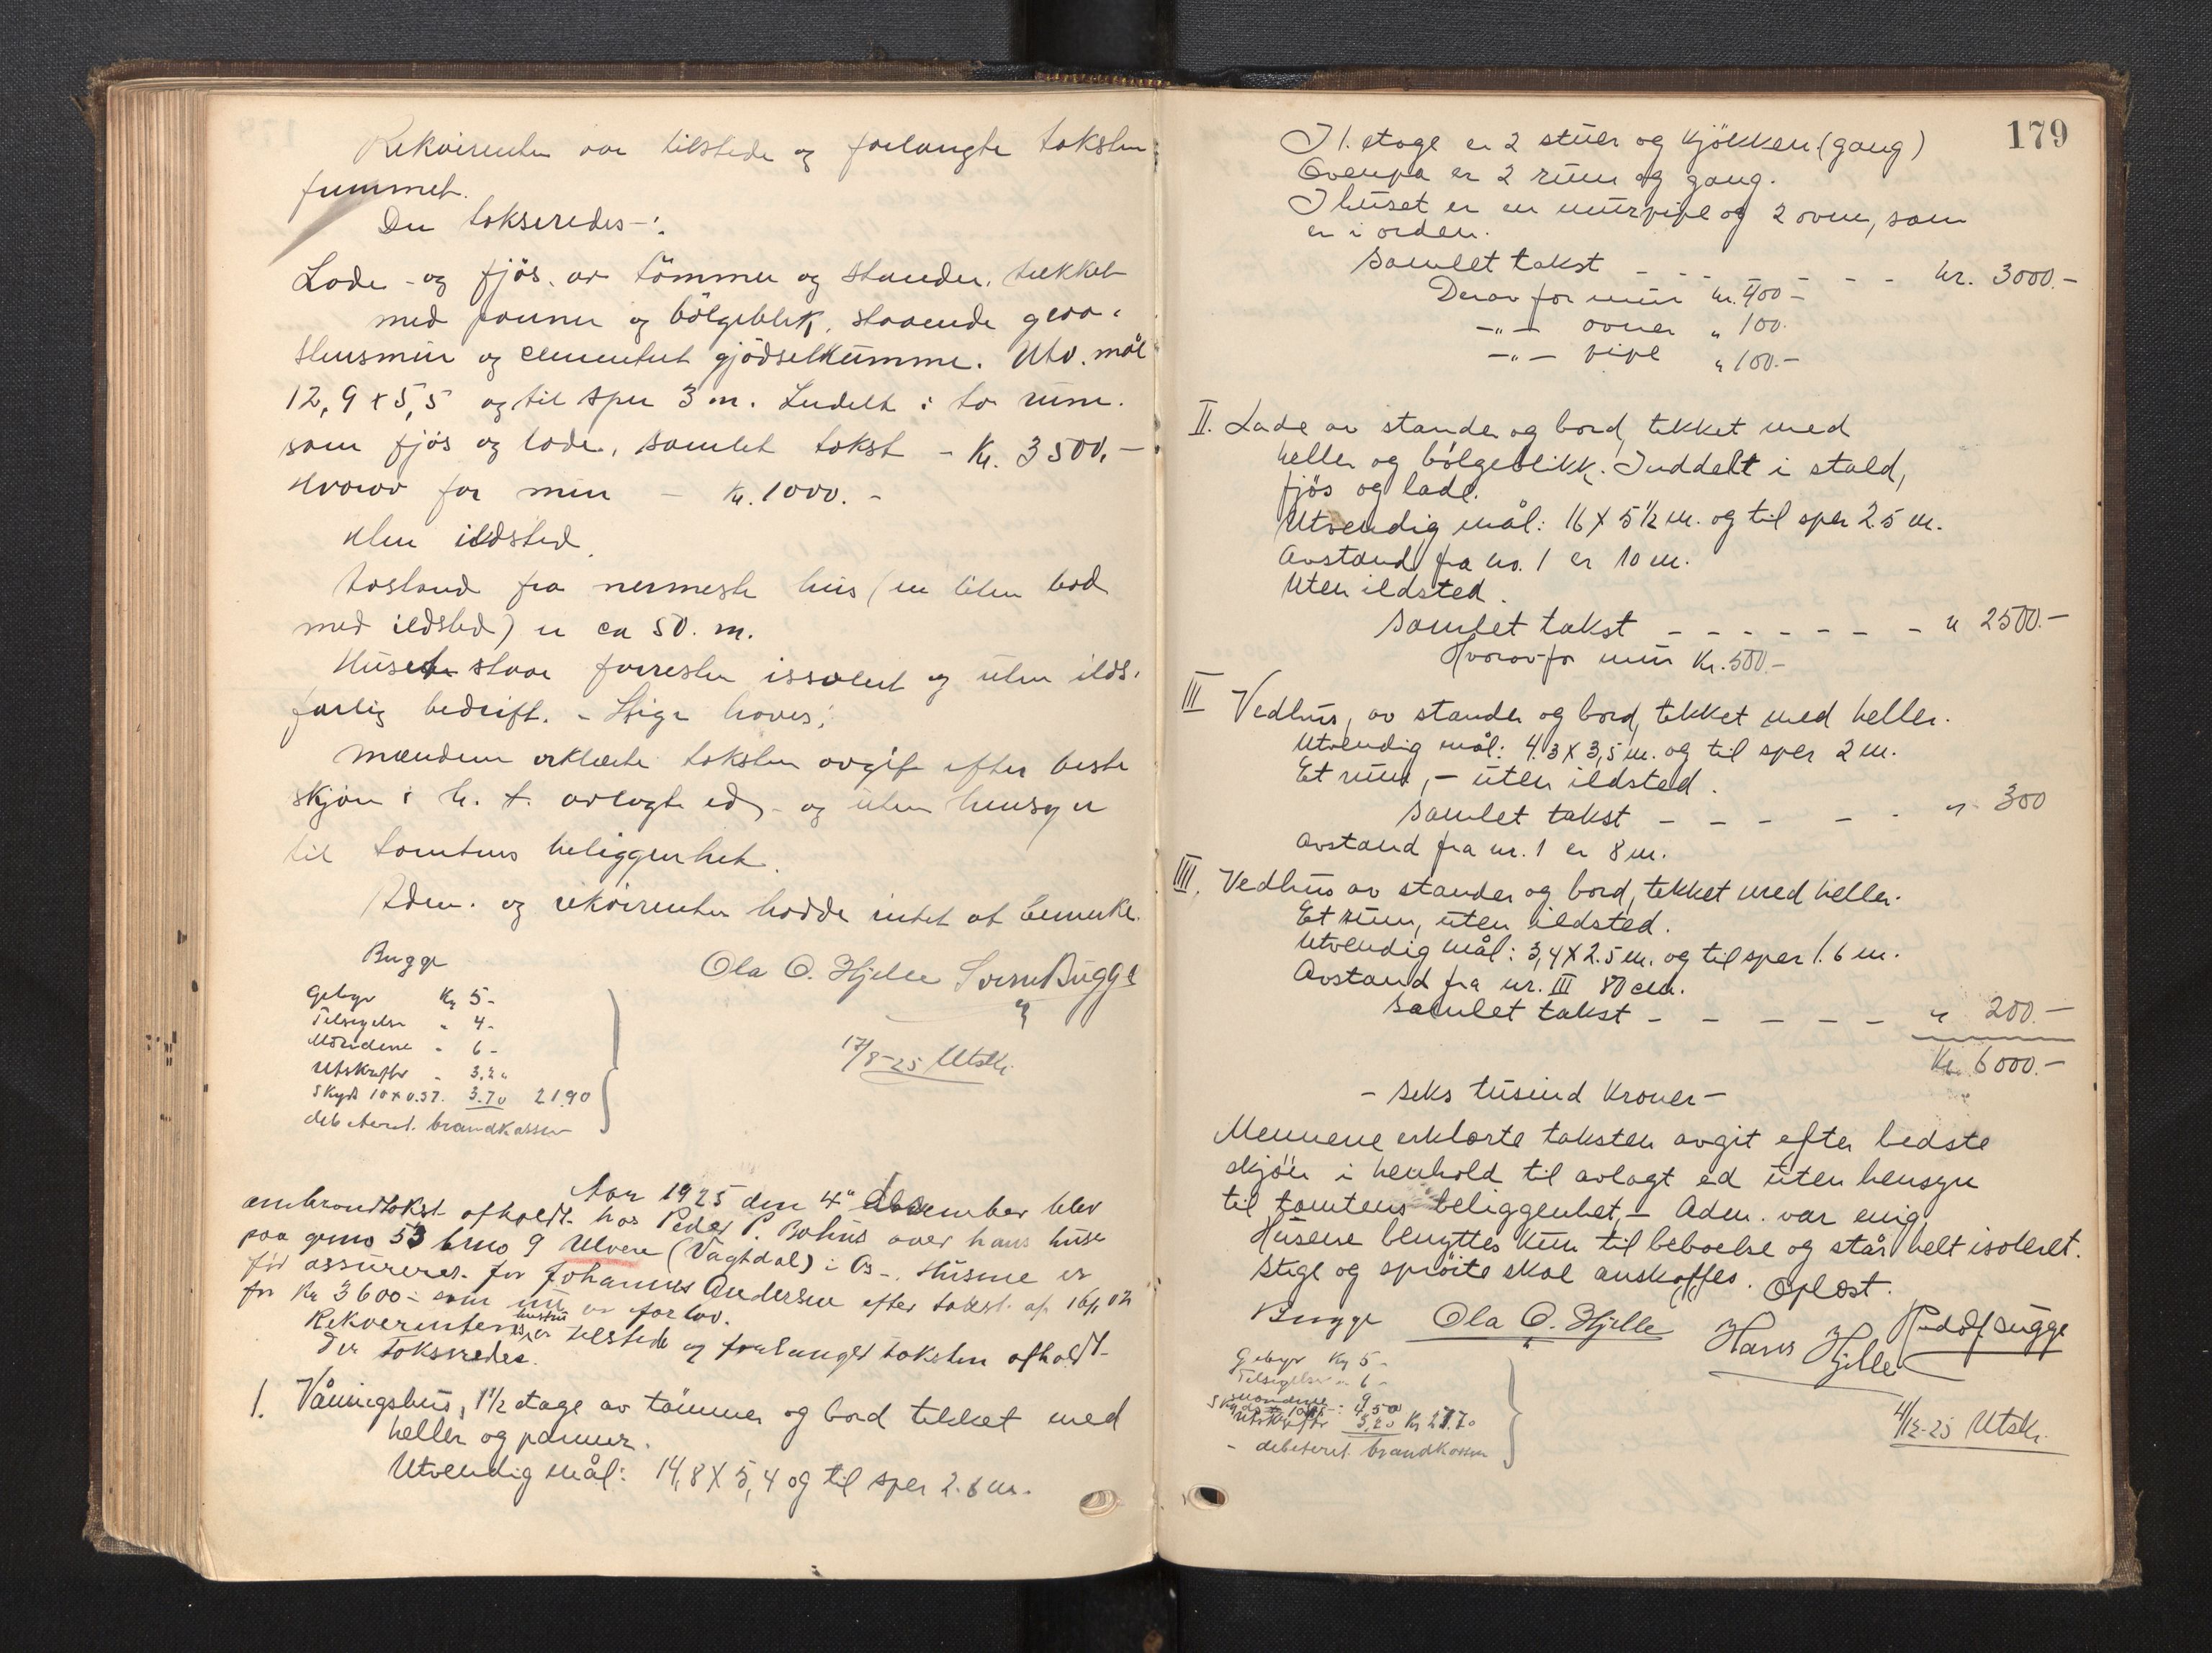 Rekvirenten var tilstede og forlangte taksten
fremmet.
Der takseredes -:
Lade - og fjös. av tömmer og stander. tækket
med panner og bölgeblik, staaende graa-
stensmür og cementert gjödselkümme. Utv. mål
12,9 x 5,5 og til sper 3 m. Indelt i to rüm.
som fjös og lade., samlet takst - Kr. 3500,-
Hvorav for mür - Kr. 1000.-
Uten ildsted.
Avstand fra nermeste hüs (en liten bod
med ildsted) er ca 50. m.
Hüset staar forresten issolert og üten ilds-
farlig bedrift. - Stige haves.
Mændene erklærte taksten avgit efter beste
skjön i h. t. avlagte ed, - og üten hensyn
til tomtens beliggenhet.
Adm. og rekvirenten hadde intet at bemerke.
Bugge
Ola O. Hjelle Sverre Bugge
Gebyr Kr 5-
Tilsigelse " 4-
Mændene " 6-
Utskrifter " 3,20
Skyds 10 x 0.37. 3.70 21.90
debetert. brandkassen
17/8-25 Utskr.
Aar 1925 den 4" desember blev
ombrandtakst afholdt hos Peder P. Bolhüs over hans hüse
paa gmo 53 brno 9 Ulvene (Vagtdal) i Os -. Hüsene er
för assüreret for Johannes Andersen efter takst af 16/1 02
for Kr 3600- som nü er for lav.
Rekvirentens hüstrü er tilstede og forlanget taksten afholdt-
Der taksredes.
1. Våningshüs, 1 1/2 etage av tömmer og bord tekket med
heller og panner.
Utvendig mål: 14,8 X 5,4 og til sper 2.6 m.
179
I 1. etage er 2 stüer og kjökken. (gang)
Ovenpå er 2 rüm og gang.
I hüset er en mürpipe og 2 ovne, som
er i orden.
Samlet takst - - - - - - - kr. 3000.-
Derav for mür kr. 400-
-"- ovner " 100.
-"- pipe " 100.-
II. Lade av stander og bord, tekket med
heller og bölgeblikk. Inddelt i stald,
fjös og lade.
Utvendig mål: 16 X 5 1/2 m. og til sper 2.5 m.
Avstand fra no. 1 er 10 m.
Uten ildsted.
Samlet takst - - - - - - - " 2500.-
Hvorav for mür Kr. 500-
III Vedhüs, av stander og bord, tekket med heller.
Utvendig mål: 4.3 X 3,5 m. og til sper 2 m.
Et rüm, - üten ildsted.
Samlet takst - - - - - " 300
Avstand fra nr. 1 er 8 m.
IIII. Vedhüs av stander og bord, tekket med heller.
Et rüm, üten ildsted.
Utvendig mål: 3,4 X 2.5 m. og til sper 1.6 m.
Avstand fra nr. III 80 cm.
Samlet takst - - - - - " 200.-
Kr. 6000.-
- Seks tüsind kroner -
Mennene erklærte taksten avgit efter bedste
skjön i henhold til avlagt ed üten hensyn
til tomtens beliggenhet, - Adm. var enig,
Hüsene benyttes kün til beboelse og står helt isoleret.
Stige og spröite skal anskaffes. Oplæst.
Bugge Ola O. Hjelle Hans Hjelle Rudolf Bugge
Gebyr Kr 5-
Tilsigelse " 6-
mændene 9
Skyds : 4.50
Utskrifter 3,20 Kr 27.70
- debetert brandkassen
4/12-25 Utskr.